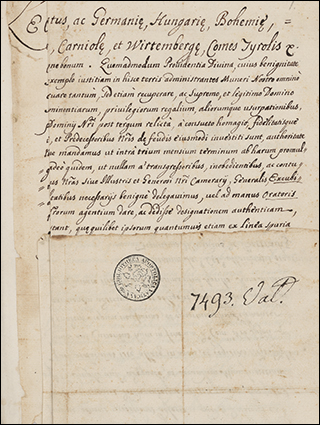 Ectus, ac Germanię, Hungarię, Bohemię,
Carniolę, et Wirtembergę, Comes Tyrolis
Quamadmodum Providentia Divina, cuius benignitate
exemplo iustitiam in hisce terris administrantes Muneri Nostro omnino
tantum, sed etiam recuperare, ac supremo, et legitimo Domino
eminentiarum, privilegiorum regalium, aliorumque usurpationibus,
post tergum relicta à consueto homagio, fidelitatisque
et Predecessoribus Nris de feudis eiusmodi investiti sunt, authoritate
mandamus, ut intra trium mensium terminum ab harum
quidem, ut nullam à transgressoribus, inobedientibus, ac
Nras sive Illustris et Generosi Nri Camerarij, Generalis
necessarijs benignè delegavimus, vel ad manus Oratoris
agentium dare, ac dedisse designationem authenticam
, quę quilibet ipsorum quantumvis etiam ex linea spuria
7493. Vat.